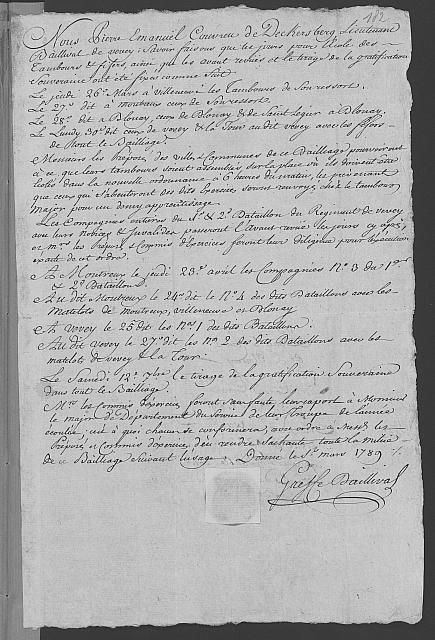 102
Nous Pierre Emanuel Couvreu de Deckersberg Lieutenant
Baillival de vevey; savoir faisons que les jours pour l'Ecole des
Tambours & fifres, ainsi que les avant revues et le tirage de la gratification
Souveraine ont été fixés comme suit
Le jeudi 26e Mars à villeneuve les Tambours de son ressort.
Le 27e dit à moutreux ceux de son ressort.
Le 28e dit à Blonay, ceux de Blonay & de Saint Legier & Blonay.
Le Lundy 30e dit ceux de vevey & la Tour au dit vevey avec les fifres
de tout le Bailliage.
Messieurs les Préposés des villes & Communes de ce Bailliage pourvoiront
à ce que leurs tambours soient sur la place où ils doivent être
dans la nouvelle ordonnance à 6 heures du matin, les prévenant
que ceux qui s'absenteront des dits Exercices seront renvoyés chez le tambour
Major pour un demy apprentissage.
Les Compagnies entieres du 1er & 2e Bataillon du Regiment de vevey
avec leurs & Invalides passeront l'Avant revue les jours cy après,
et Mrs les Préposés & Commis d'Exercices feront leur diligence pour l'execution
exacte de cet ordre.
A Montreux le jeudi 23e avril les Compagnies No 3 du 1er
& 2e Bataillons.
Au dit Montreux le 24e dit le No 4 des dits Bataillons avec les
Matelots de moutreux, villeneuve et Blonay
A Vevey le 25e dit les No 1 des dits Bataillons.
Au dit Vevey le 27e dit les No 2 des dits Bataillons avec les
matelots de vevey & la Tour.
Le Samedi le tirage de la gratification Souveraine
dans tout le Bailliage.
Mrs les Commis d'exercice feront sans faute leur rapport à Monsieur
le major de Département du Service de leur Troupe de l'année
écoulée: est à quoi chacun se conformera, avec ordre à Messrs les
Préposés & Commis d'exercice, d'en rendre sachante toute la milice
de ce Bailliage suivant l'usage. Donné le mars 1789
Greffe Baillival